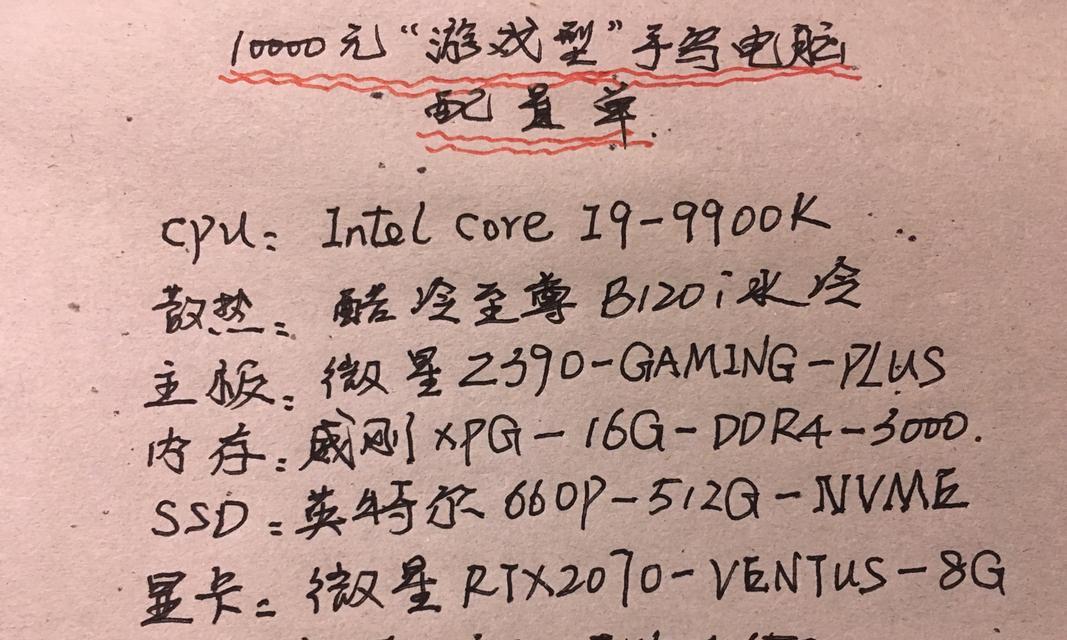 10000元“游戏型”手写电脑
配置单.
CPU: Intel Core I9-9900K
散热: 酷冷至尊B120i水冷
主板: 微星Z390-GAMING-PLUS
内存: 威刚XPG-16G-DDR4-3000.
SSD: 英特尔660P-512G-NVME
显卡: 微星RTX2070-VENTUS-8G